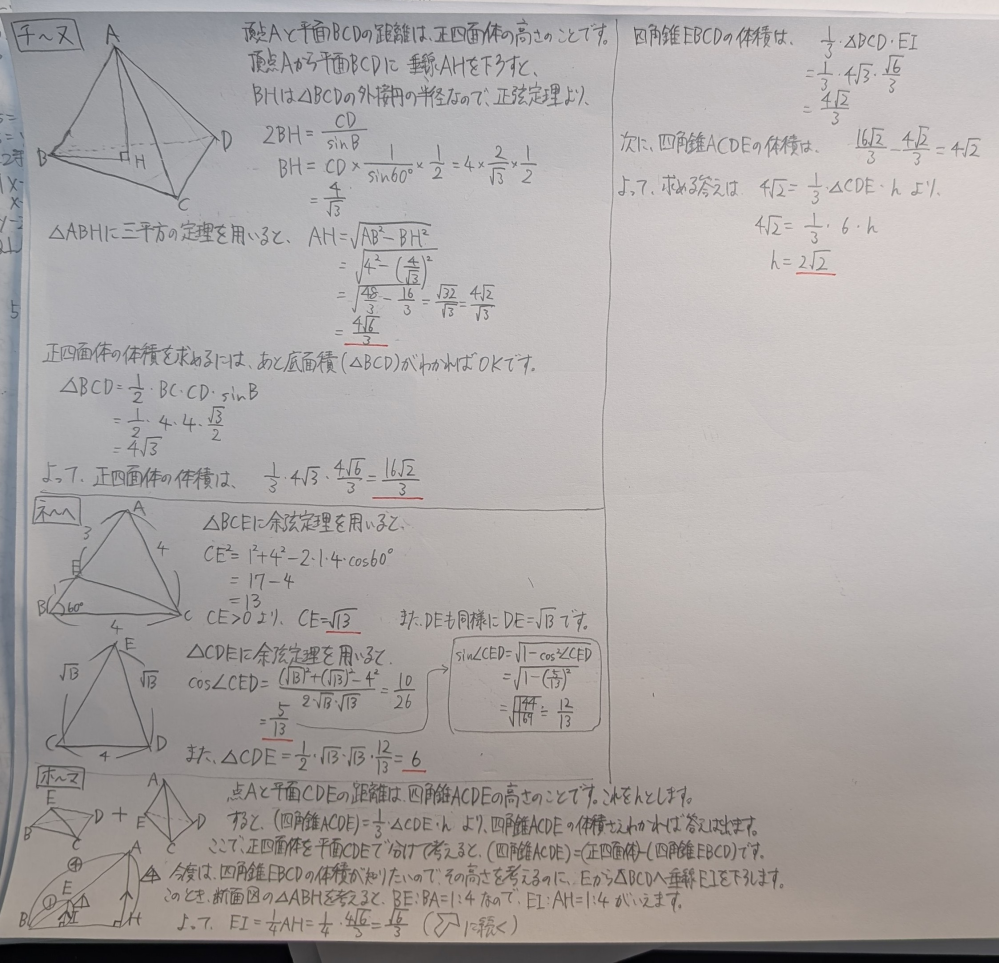 チ～ヌ
A
B
H
D
C
頂点Aと平面BCDの距離は、正四面体の高さのことです。
頂点Aから平面BCDに垂線AHを下ろすと、
BHは△BCDの外接円の半径なので、正弦定理より、
2BH = CD/sinB
BH = CD × 1/sin60° × 1/2 = 4 × 2/√3 × 1/2
= 4/√3
△ABHに三平方の定理を用いると、 AH = √(AB² - BH²)
= √(4² - (4/√3)²)
= √(48/3 - 16/3) = √32/√3 = 4√2/√3
= 4√6/3
正四面体の体積を求めるには、あと底面積(△BCD)がわかればOKです。
△BCD = 1/2 · BC · CD · sinB
= 1/2 · 4 · 4 · √3/2
= 4√3
よって、正四面体の体積は、 1/3 · 4√3 · 4√6/3 = 16√2/3
ネ～ヘ
A
3
4
E
1
60°
B
C
4
△BCEに余弦定理を用いると、
CE² = 1² + 4² - 2·1·4·cos60°
= 17 - 4
= 13
CE > 0 より、 CE = √13 また、DEも同様にDE = √13 です。
E
√13
√13
C
D
4
△CDEに余弦定理を用いると、
cos∠CED = ((√13)² + (√13)² - 4²)/(2·√13·√13) = 10/26
= 5/13
sin∠CED = √(1 - cos²∠CED)
= √(1 - (5/13)²)
= √(144/169) = 12/13
また、△CDE = 1/2 · √13 · √13 · 12/13 = 6
ホ～マ
E
B
D
C
+
A
E
D
C
点Aと平面CDEの距離は、四角錐ACDEの高さのことです。これをhとします。
すると、(四角錐ACDE) = 1/3 · △CDE · h より、四角錐ACDEの体積さえわかれば答えは出ます。
ここで、正四面体を平面CDEで分けて考えると、(四角錐ACDE) = (正四面体) - (四角錐EBCD)です。
A
④
E
①
B
I
H
今度は、四角錐EBCDの体積が知りたいので、その高さを考えるのに、Eから△BCDへ垂線EIを下ろします。
このとき、断面図の△ABHを考えると、BE:BA = 1:4なので、EI:AH = 1:4がいえます。
よって、EI = 1/4 AH = 1/4 · 4√6/3 = √6/3 (に続く)
四角錐EBCDの体積は、 1/3 · △BCD · EI
= 1/3 · 4√3 · √6/3
= 4√2/3
次に、四角錐ACDEの体積は、 16√2/3 - 4√2/3 = 4√2
よって、求める答えは 4√2 = 1/3 · △CDE · h より、
4√2 = 1/3 · 6 · h
h = 2√2